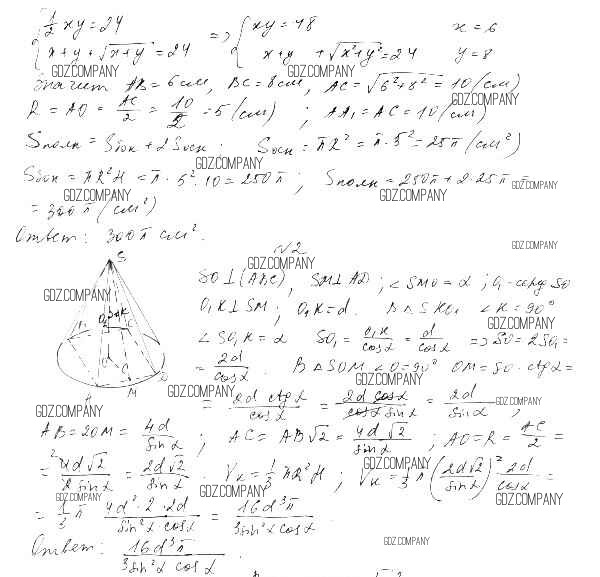 { 1/2 xy = 24 => { xy = 48 x = 6
{ x + y + √(x + y) = 24 { x + y + √(x² + y²) = 24 y = 8
GDZ.COMPANY GDZ.COMPANY
Значит AB = 6 см, BC = 8 см, AC = √(6² + 8²) = 10 (см)
GDZ.COMPANY
R = AO = AC/2 = 10/2 = 5 (см) ; AA₁ = AC = 10 (см)
Sполн = Sбок + 2 Sосн ; Sосн = πR² = π·5² = 25π (см²)
GDZ.COMPANY
Sбок = πR²H = π·5²·10 = 250π ; Sполн = 250π + 2·25π =
GDZ.COMPANY GDZ.COMPANY GDZ.COMPANY
= 300π (см²)
Ответ: 300π см².
GDZ.COMPANY
№2
GDZ.COMPANY
S
SO ⊥ (ABC), SM ⊥ AD ; ∠SMO = α ; O₁ - серед SO
GDZ.COMPANY
O₁K ⊥ SM ; O₁K = d. В ΔSKO₁ ∠K = 90°
GDZ.COMPANY
∠SO₁K = α SO₁ = O₁K/cosα = d/cosα => SO = 2SO₁ =
= 2d/cosα . В ΔSOM ∠O = 90° OM = SO · ctgα =
GDZ.COMPANY GDZ.COMPANY
A M D
= 2d ctgα/cosα = 2d cosα/cosα sinα = 2d/sinα ,
GDZ.COMPANY GDZ.COMPANY
AB = 2OM = 4d/sinα ; AC = AB√2 = 4d√2/sinα ; AO = R = AC/2 =
= 4d√2/2 sinα = 2d√2/sinα . Vк = 1/3 πR²H ; Vк = 1/3 π (2d√2/sinα)² 2d/cosα =
GDZ.COMPANY GDZ.COMPANY GDZ.COMPANY GDZ.COMPANY
= 1/3 π 4d²·2·2d/sin²α cosα = 16d³π/3sin²α cosα .
Ответ: 16d³π/3sin²α cosα .
GDZ.COMPANY